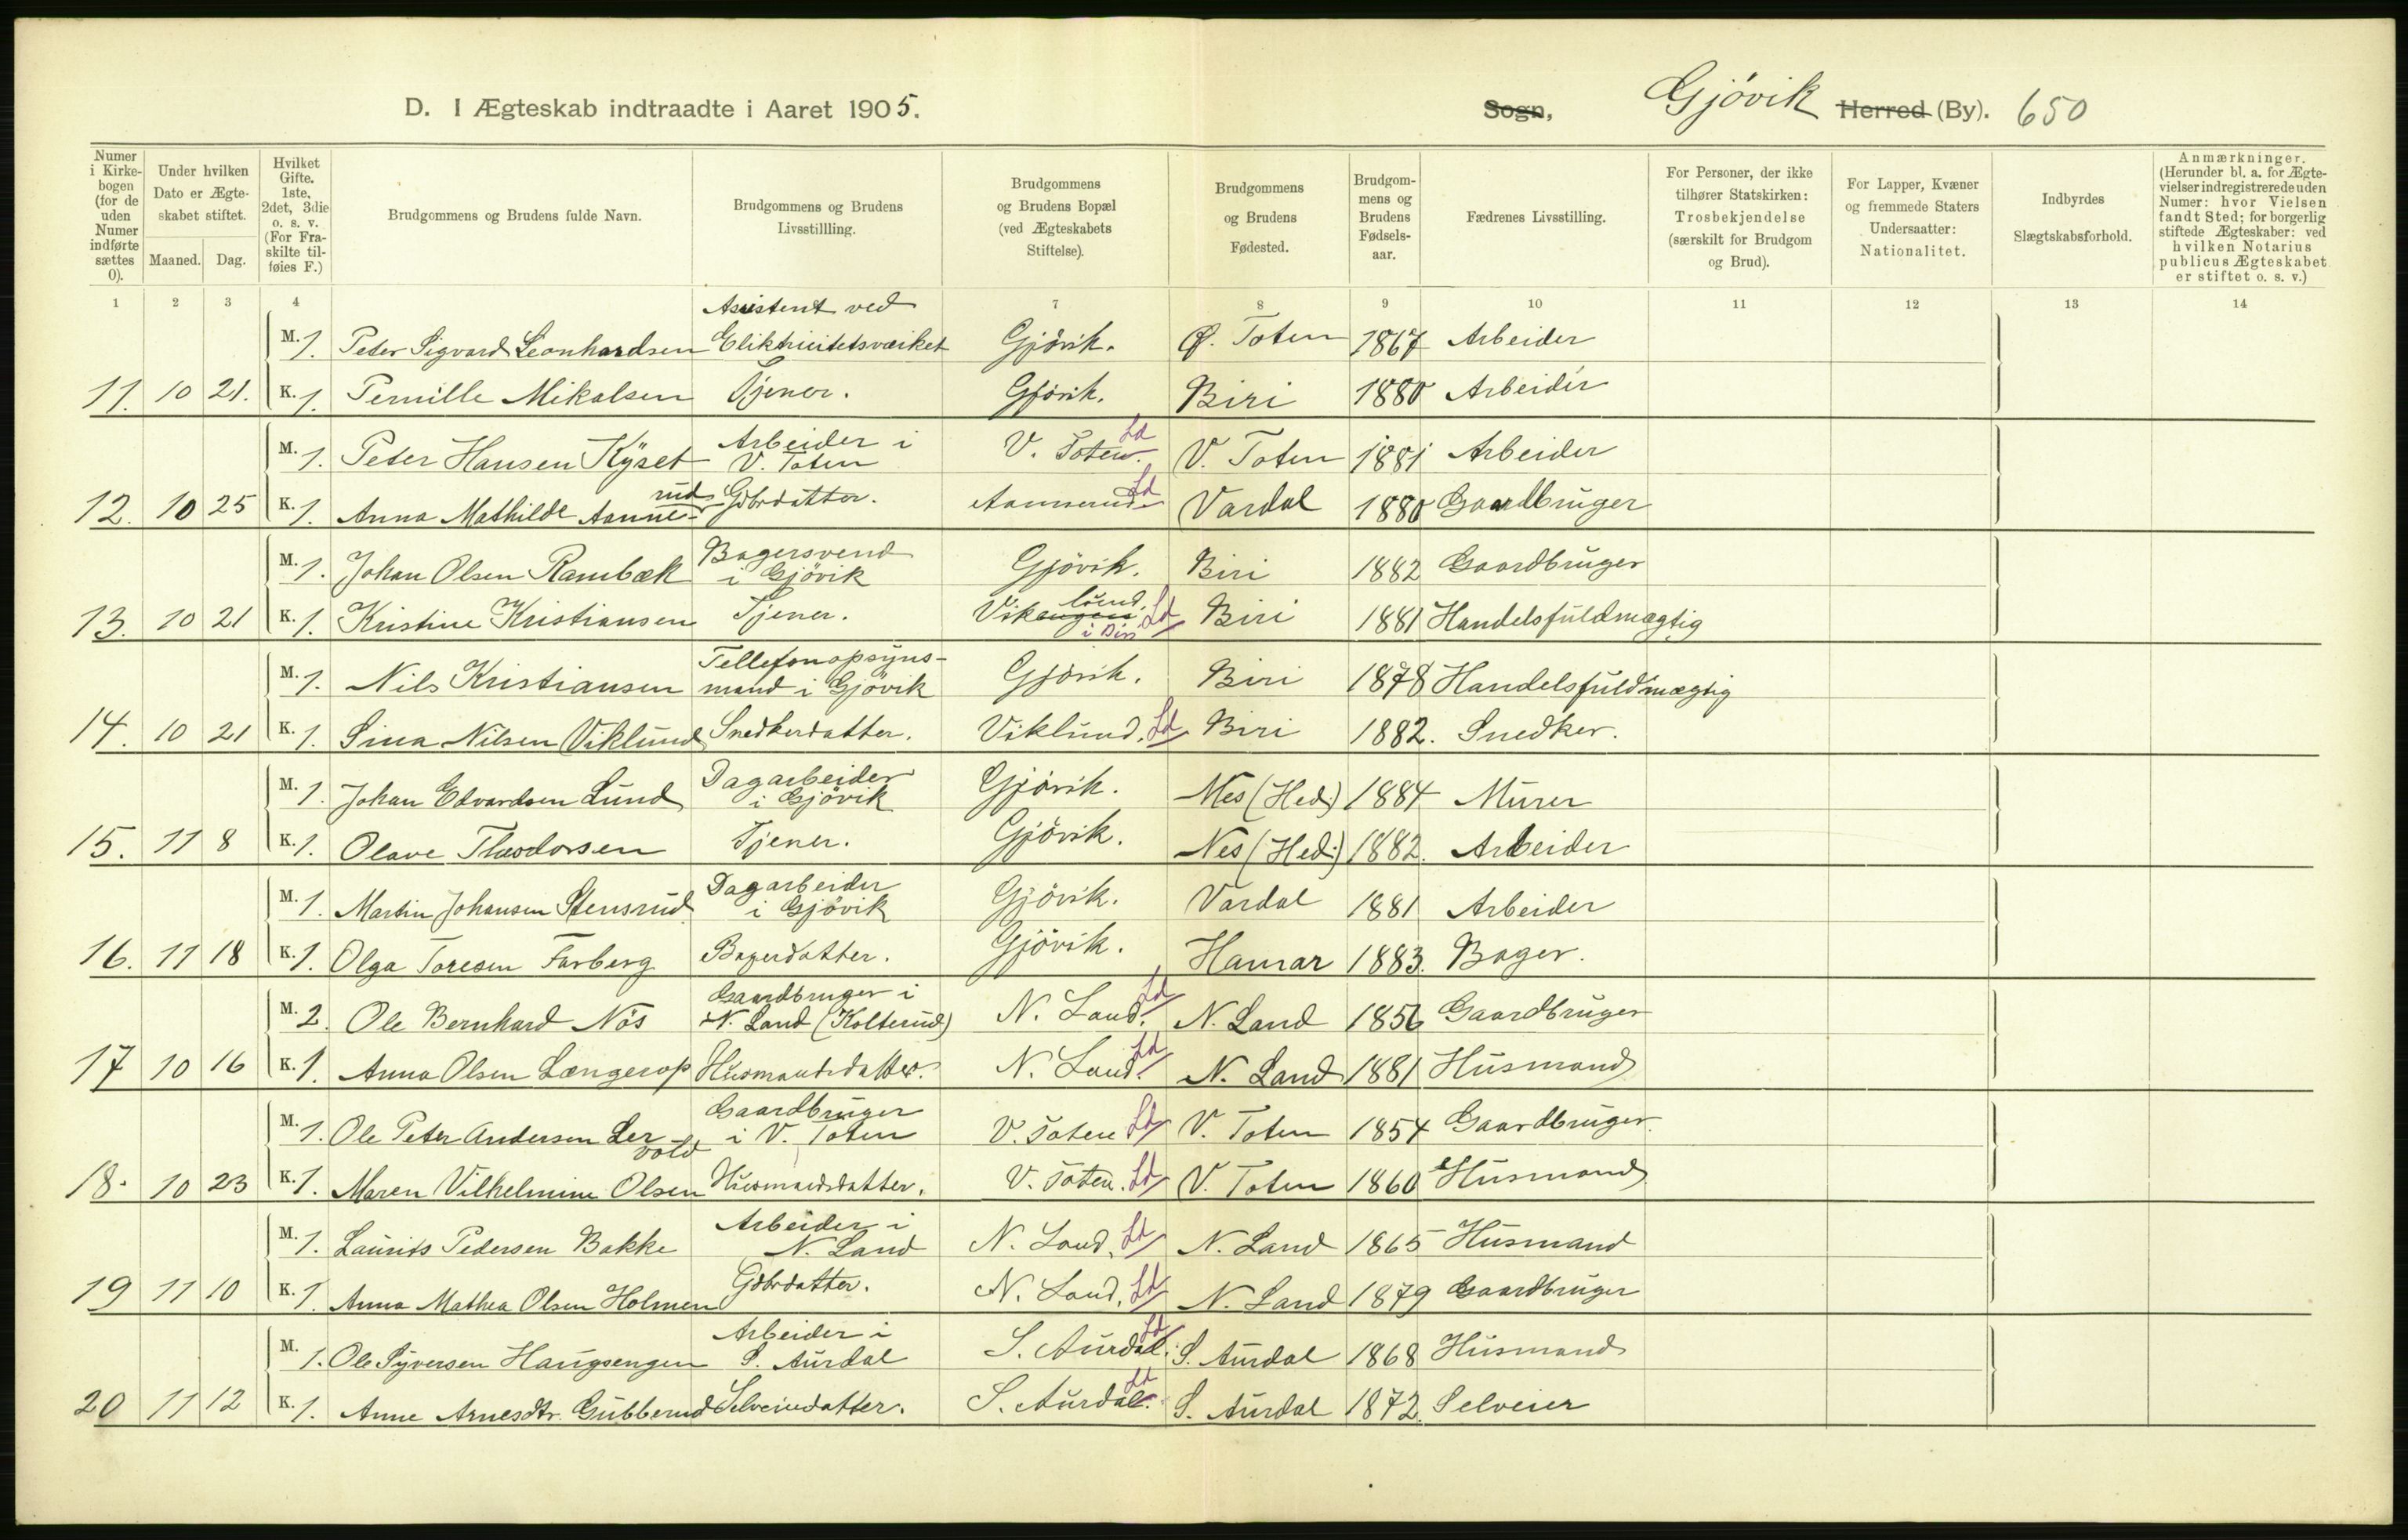 D. I Ægteskab indtraadte i Aaret 1905.
Sogn, Gjövik Herred (By). 650
Numer i Kirkebogen (for de uden Numer indførte sættes 0).
Under hvilken Dato er Ægteskabet stiftet.
Maaned. Dag.
Hvilket Gifte. 1ste, 2det, 3die o. s. v. (For Fraskilte tilføies F.)
Brudgommens og Brudens fulde Navn.
Brudgommens og Brudens Livsstillling.
Brudgommens og Brudens Bopæl (ved Ægteskabets Stiftelse).
Brudgommens og Brudens Fødested.
Brudgommens og Brudens Fødselsaar.
Fædrenes Livsstilling.
For Personer, der ikke tilhører Statskirken: Trosbekjendelse (særskilt for Brudgom og Brud).
For Lapper, Kvæner og fremmede Staters Undersaatter: Nationalitet.
Indbyrdes Slægtskabsforhold.
Anmærkninger. (Herunder bl. a. for Ægtevielser indregistrerede uden Numer: hvor Vielsen fandt Sted; for borgerlig stiftede Ægteskaber: ved hvilken Notarius publicus Ægteskabet er stiftet o. s. v.)
1 2 3 4 7 8 9 10 11 12 13 14
Assistent ved
M. 1. Peter Sigvard Leonhardsen Eliktricitetsværket Gjövik. Ø. Toten 1867 Arbeider
11. 10 21. K. 1. Pernille Mikalsen Tjener. Gjövik. Biri 1880 Arbeider
M. 1. Peter Hansen Kÿset Arbeider i V. Toten V. Toten. Ld V. Toten 1881 Arbeider
12. 10 25 K. 1. Anna Mathilde Aannerud Gdbrdatter. Aannerud Ld Vardal 1880 Gaardbruger
M. 1. Johan Olsen Rambæk Bagersvend i Gjövik Gjövik. Biri 1882 Gaardbruger
13. 10 21 K. 1. Kristine Kristiansen Tjener. Vikengen lund. i Biri Ld Biri 1881 Handelsfuldmægtig
M. 1. Nils Kristiansen Tellefonopsynsmand i Gjövik Gjövik. Biri 1878 Handelsfuldmægtig
14. 10 21 K. 1. Sina Nilsen Viklund Snedkerdatter. Viklund. Ld Biri 1882. Snedker.
M. 1. Johan Edvardsen Lund Dagarbeider i Gjövik Gjövik. Nes (Hed.) 1884 Murer
15. 11 8 K. 1. Olave Theodorsen Tjener. Gjövik. Nes (Hed.) 1882. Arbeider
M. 1. Martin Johansen Stensrud Dagarbeider i Gjövik Gjövik. Vardal 1881 Arbeider
16. 11 18 K. 1. Olga Toresen Farberg Bagerdatter. Gjövik. Hamar 1883. Bager.
M. 2. Ole Bernhard Nös Gaardbruger i N. Land (Kolterud) N. Land. Ld N. Land 1856 Gaardbruger
17 10 16 K. 1. Anna Olsen Længerop Husmandsdatter. N. Land. Ld N. Land 1881 Husmand
M. 1. Ole Peter Andersen Lervold Gaardbruger i V. Toten V. Toten Ld V. Toten 1854 Gaardbruger.
18. 10 23 K. 1. Maren Vilhelmine Olsen Husmandsdatter. V. Toten. Ld V. Toten 1860 Husmand
M. 1. Laurits Pedersen Bakke Arbeider i N. Land N. Land. Ld N. Land 1865 Husmand
19 11 10 K. 1. Anna Mathea Olsen Holmen Gdbrdatter. N. Land. Ld N. Land 1879 Gaardbruger
M. 1. Ole Syversen Haugsengen Arbeider i S. Aurdal S. Aurdal. Ld S. Aurdal 1868 Husmand
20 11 12 K. 1. Anne Arnesdtr. Gubberud Selveierdatter. S. Aurdal. Ld S. Aurdal 1872. Selveier